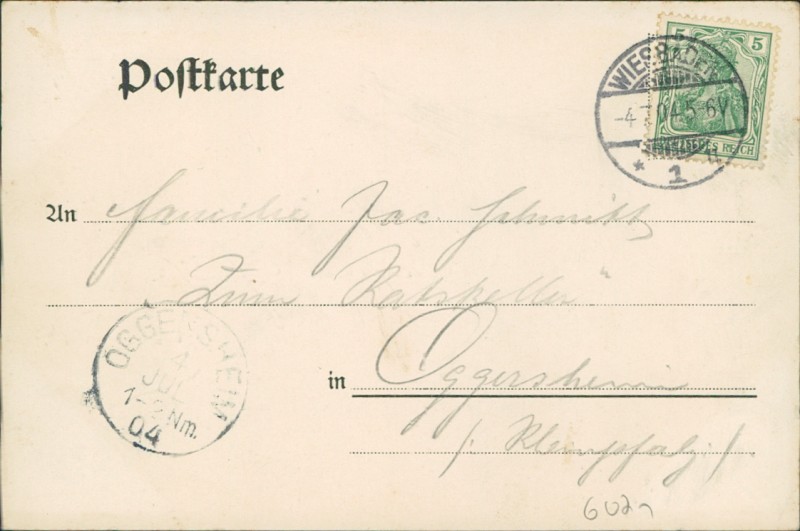 Postkarte
5 5
DEUTSCHES REICH
WIESBADEN
-4.7.04.5-6V
* 1
An Familie Jac. Schmitt
"Zum Ratskeller"
in Oggersheim
/: Rheinpfalz :/
OGGERSHEIM
4
JUL
1-2 Nm.
04